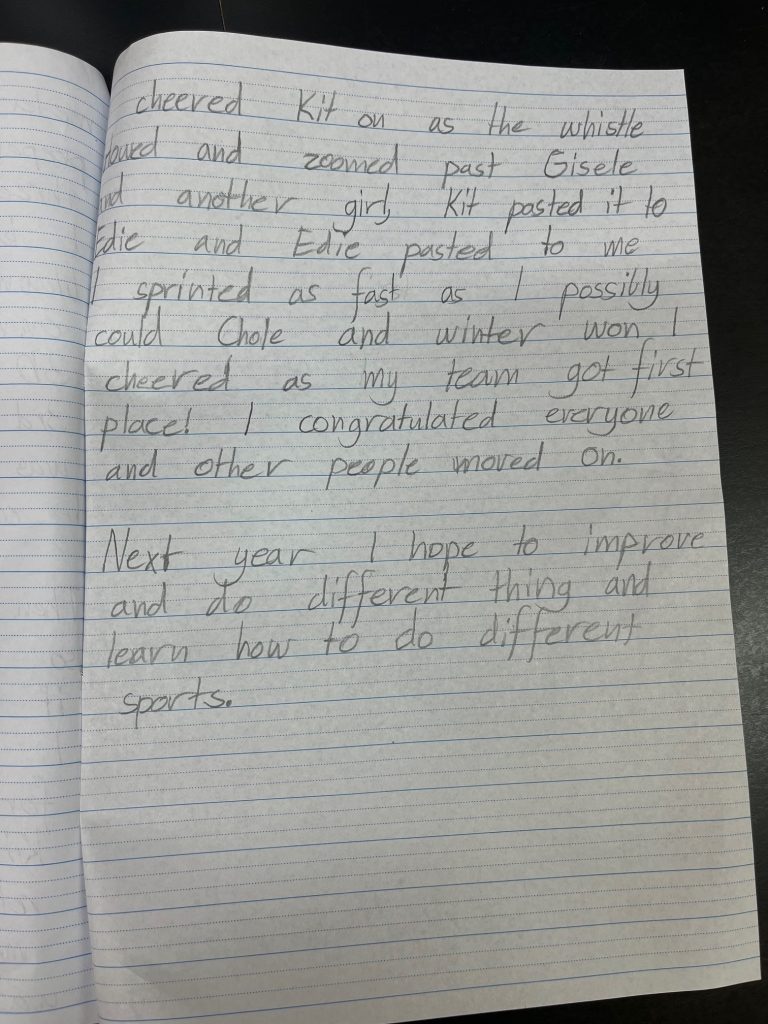 cheered Kit on as the whistle
and zoomed past Gisele
and another girl, Kit pasted it to
Edie and Edie pasted to me
I sprinted as fast as I possibly
could Chole and winter won I
cheered as my team got first
place! I congratulated everyone
and other people moved on.
Next year I hope to improve
and do different thing and
learn how to do different
sports.